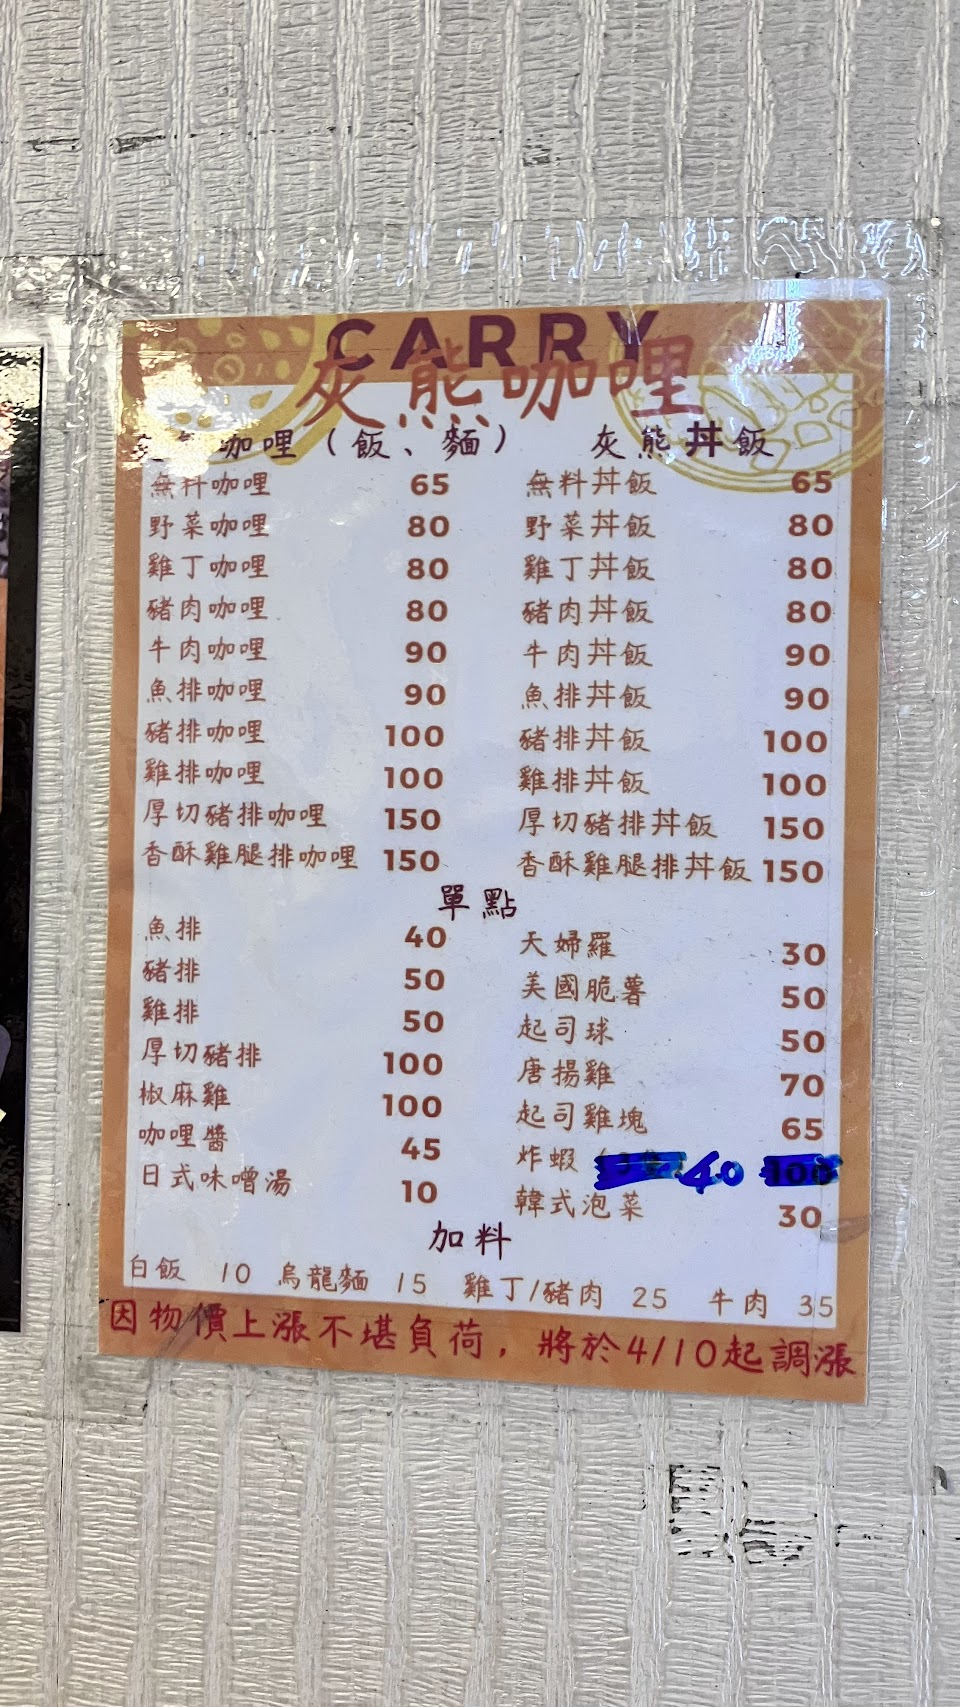 CARRY
灰熊咖哩
咖哩（飯、麵）
無料咖哩 65
野菜咖哩 80
雞丁咖哩 80
豬肉咖哩 80
牛肉咖哩 90
魚排咖哩 90
豬排咖哩 100
雞排咖哩 100
厚切豬排咖哩 150
香酥雞腿排咖哩 150
灰熊丼飯
無料丼飯 65
野菜丼飯 80
雞丁丼飯 80
豬肉丼飯 80
牛肉丼飯 90
魚排丼飯 90
豬排丼飯 100
雞排丼飯 100
厚切豬排丼飯 150
香酥雞腿排丼飯 150
單點
魚排 40
豬排 50
雞排 50
厚切豬排 100
椒麻雞 100
咖哩醬 45
日式味噌湯 10
天婦羅 30
美國脆薯 50
起司球 50
唐揚雞 70
起司雞塊 65
炸蝦 40 100
韓式泡菜 30
加料
白飯 10 烏龍麵 15 雞丁/豬肉 25 牛肉 35
因物價上漲不堪負荷，將於4/10起調漲